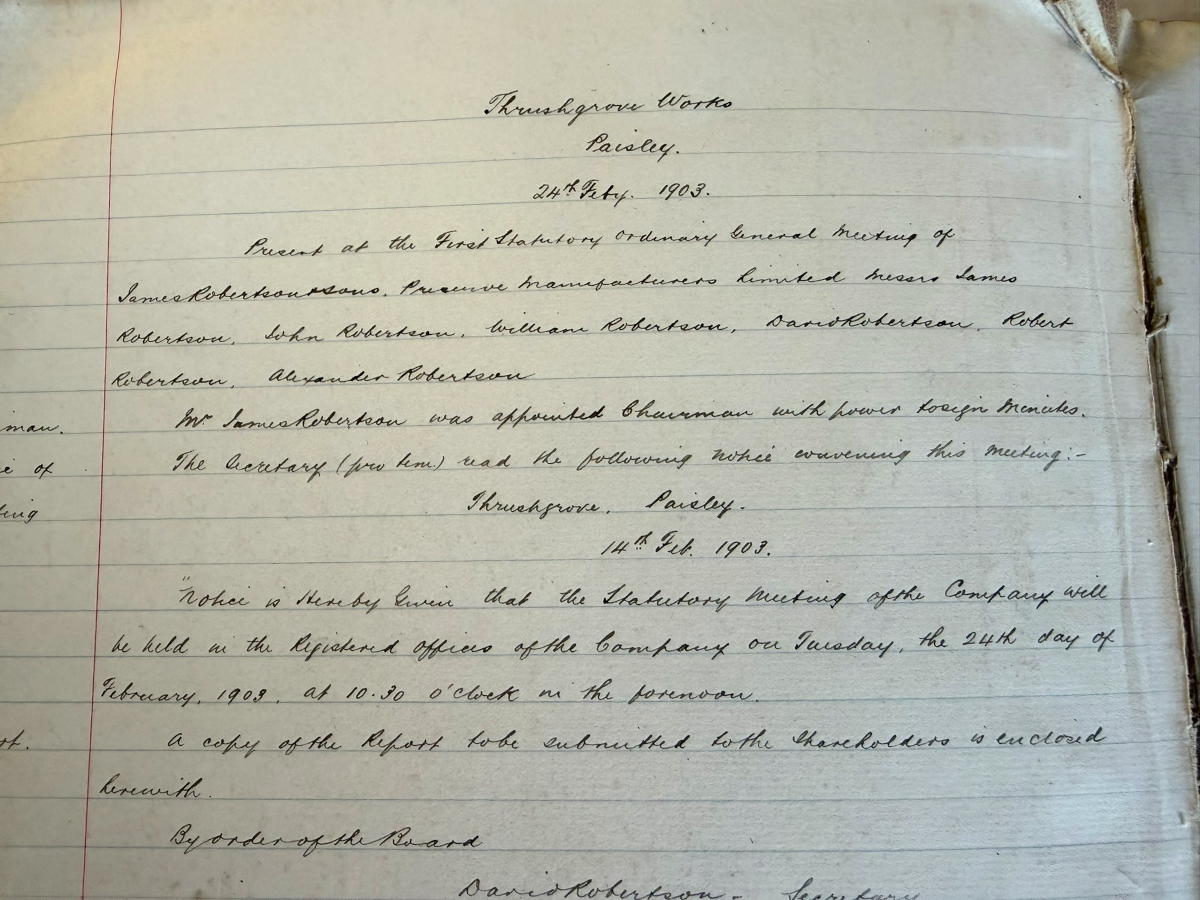 Thrushgrove Works
Paisley.
24th Feby. 1903.
Present at the First Statutory Ordinary General Meeting of
James Robertson & Sons, Preserve Manufacturers Limited Messrs James
Robertson, John Robertson, William Robertson, David Robertson, Robert
Robertson, Alexander Robertson
Mr James Robertson was appointed Chairman with power to sign Minutes.
The Secretary (pro tem.) read the following notice convening this meeting:-
Thrushgrove, Paisley.
14th Feb. 1903.
"Notice is Hereby Given that the Statutory Meeting of the Company will
be held in the Registered offices of the Company on Tuesday, the 24th day of
February, 1903, at 10.30 o'clock in the forenoon.
A copy of the Report to be submitted to the Shareholders is enclosed
herewith.
By order of the Board
David Robertson - Secretary
man.
of